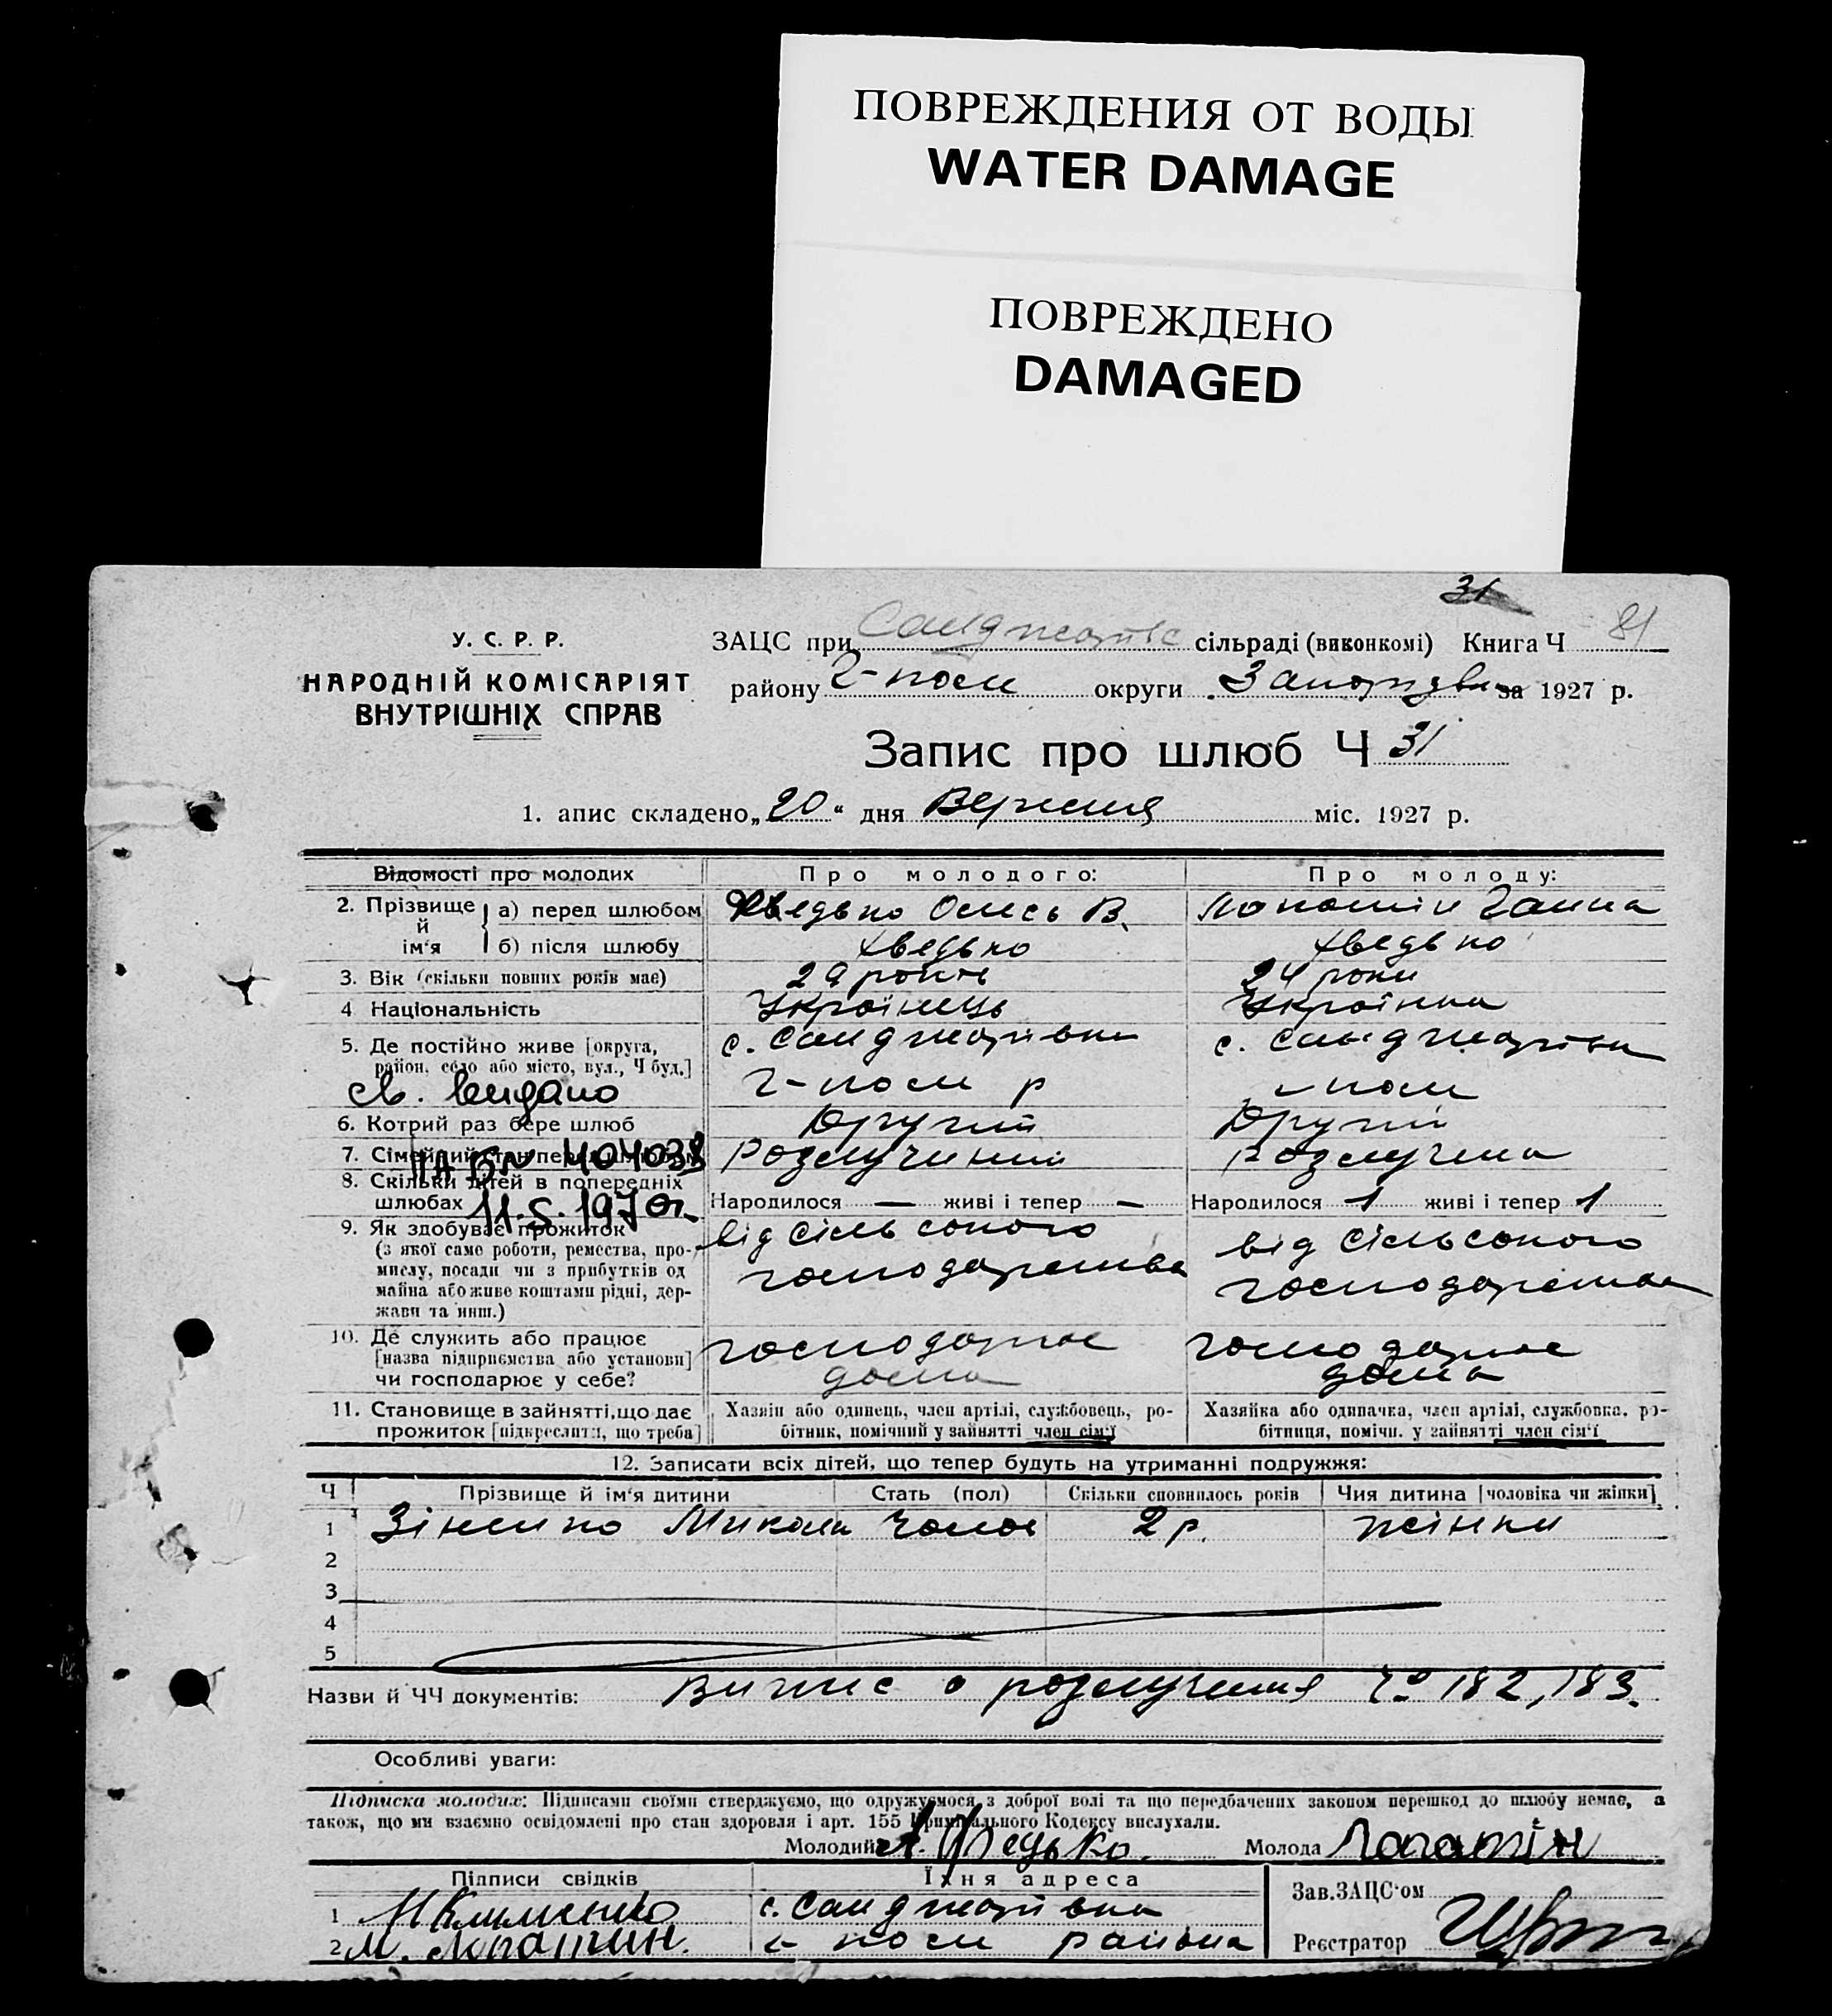 ПОВРЕЖДЕНИЯ ОТ ВОДЫ
WATER DAMAGE
ПОВРЕЖДЕНО
DAMAGED
31
У. С. Р. Р.
НАРОДНІЙ КОМІСАРІЯТ
ВНУТРІШНІХ СПРАВ
ЗАЦС при сільраді (виконкомі) Книга Ч 81
району Г-поле округи за 1927 р.
Запис про шлюб Ч 31
1. апис складено „20“ дня Вересня міс. 1927 р.
Відомості про молодих Про молодого: Про молоду:
2. Прізвище й ім'я а) перед шлюбом Хведько Олесь В. Ганна
б) після шлюбу Хведько Хведько
3. Вік (скільки повних років має) 29 років 24 роки
4 Національність Українець Українка
5. Де постійно живе [округа, с. Санджарівка с. Санджарівка
район, село або місто, вул., Ч буд.] Г-поле р -поле
св. видано
6. Котрий раз бере шлюб Другий Другий
7. Сімейний стан перед шлюбом Розлучений Розлучена
ІІА БN 404038
8. Скільки дітей в попередніх
шлюбах Народилося — живі і тепер — Народилося 1 живі і тепер 1
11.5.1970г.
9. Як здобуває прожиток від сільського від сільського
(з якої саме роботи, ремества, про- господарства господарства
мислу, посади чи з прибутків од
майна або живе коштами рідні, дер-
жави та инш.)
10. Де служить або працює господарює господарює
[назва підприємства або установи] дома дома
чи господарює у себе?
11. Становище в зайнятті, що дає Хазяїн або одинець, член артілі, службовець, ро- Хазяйка або одиначка, член артілі, службовка, ро-
прожиток [підкреслити, що треба] бітник, помічний у зайнятті член сім'ї бітниця, помічн. у зайнятті член сім'ї
12. Записати всіх дітей, що тепер будуть на утриманні подружжя:
Ч Прізвище й ім'я дитини Стать (пол) Скільки сповнилось років Чия дитина [чоловіка чи жінки]
1 Микола Чолов 2 р. жінки
2
3
4
5
Назви й ЧЧ документів: Випис о розлучення Ч° 182, 183.
Особливі уваги:
Підписка молодих: Підписами своїми стверджуємо, що одружуємося з доброї волі та що передбачених законом перешкод до шлюбу немає, а
також, що ми взаємно освідомлені про стан здоровля і арт. 155 Кримінального Кодексу вислухали.
Молодий А. Федько. Молода
Підписи свідків Їхня адреса Зав. ЗАЦС'ом
1 Н Клименко с. Санджарівка
2 М. поле району Реєстратор